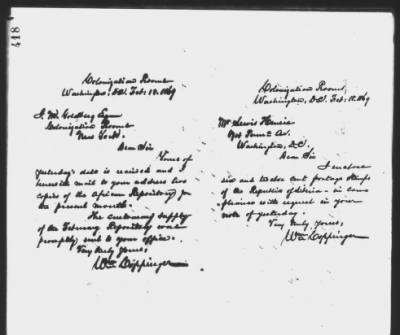 418
Colonization Rooms
Washington, D.C. Feb. 18. 1869
Goldberg Esqr
Colonization Rooms
New York.
Dear Sir
Yours of
yesterday's date is received and I
herewith mail to your address two
copies of the African Repository for
the present month.
The customary supply
of the February Repository was
promptly sent to your office.
Very truly yours,
Wm Coppinger
Colonization Rooms,
Washington, D.C. Feb. 18. 1869
Mr Lewis
Penna Av.
Washington, D.C.
Dear Sir
I enclose
six and twelve cent postage stamps
of the Republic of Liberia - in com-
pliance with request in your
note of yesterday.
Very truly yours,
Wm Coppinger